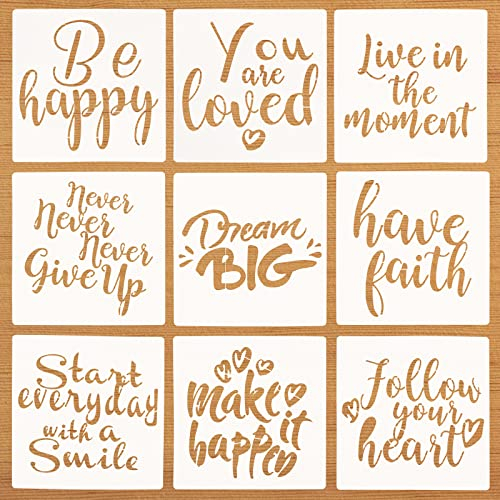 Be
happy
You
are
loved
Live in
the
moment
Never
Never
Never
Give Up
Dream
BIG
have
faith
Start
everyday
with a
Smile
make
it
happen
Follow
your
heart